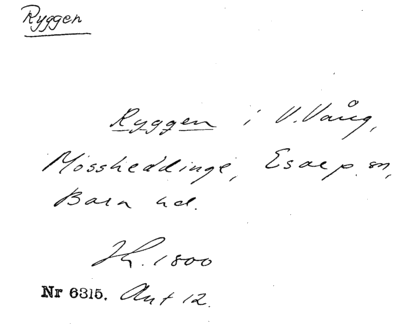 Ryggen
Ryggen i V. Vång,
Mossheddinge, Esarp. sn,
Bara hd.
Jh. 1800
Nr 6315. Ant 12.